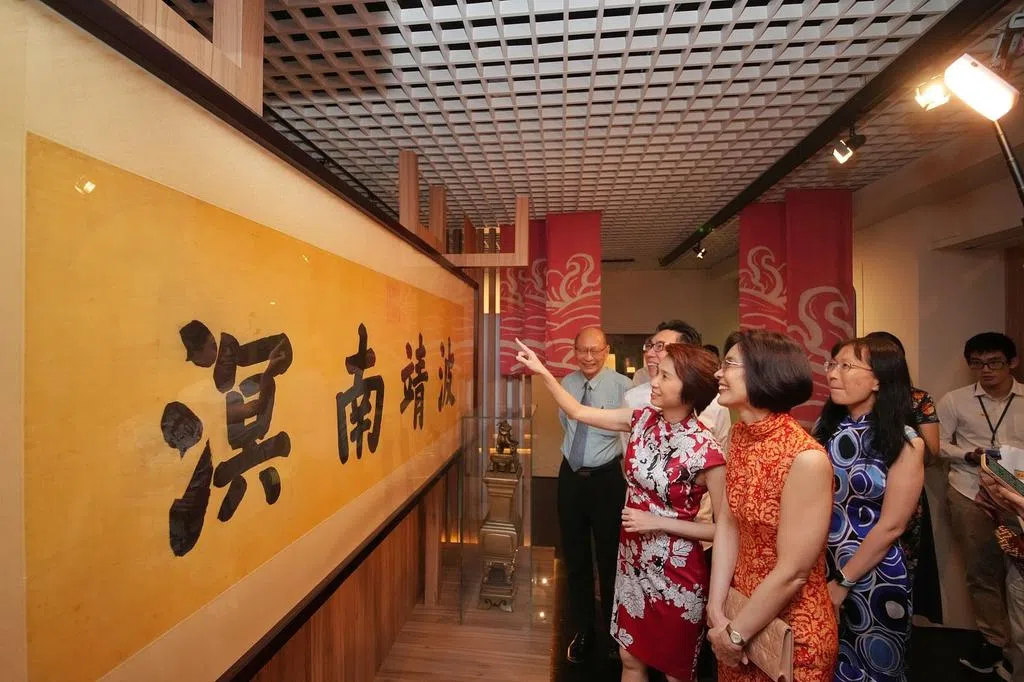 波靖南溟